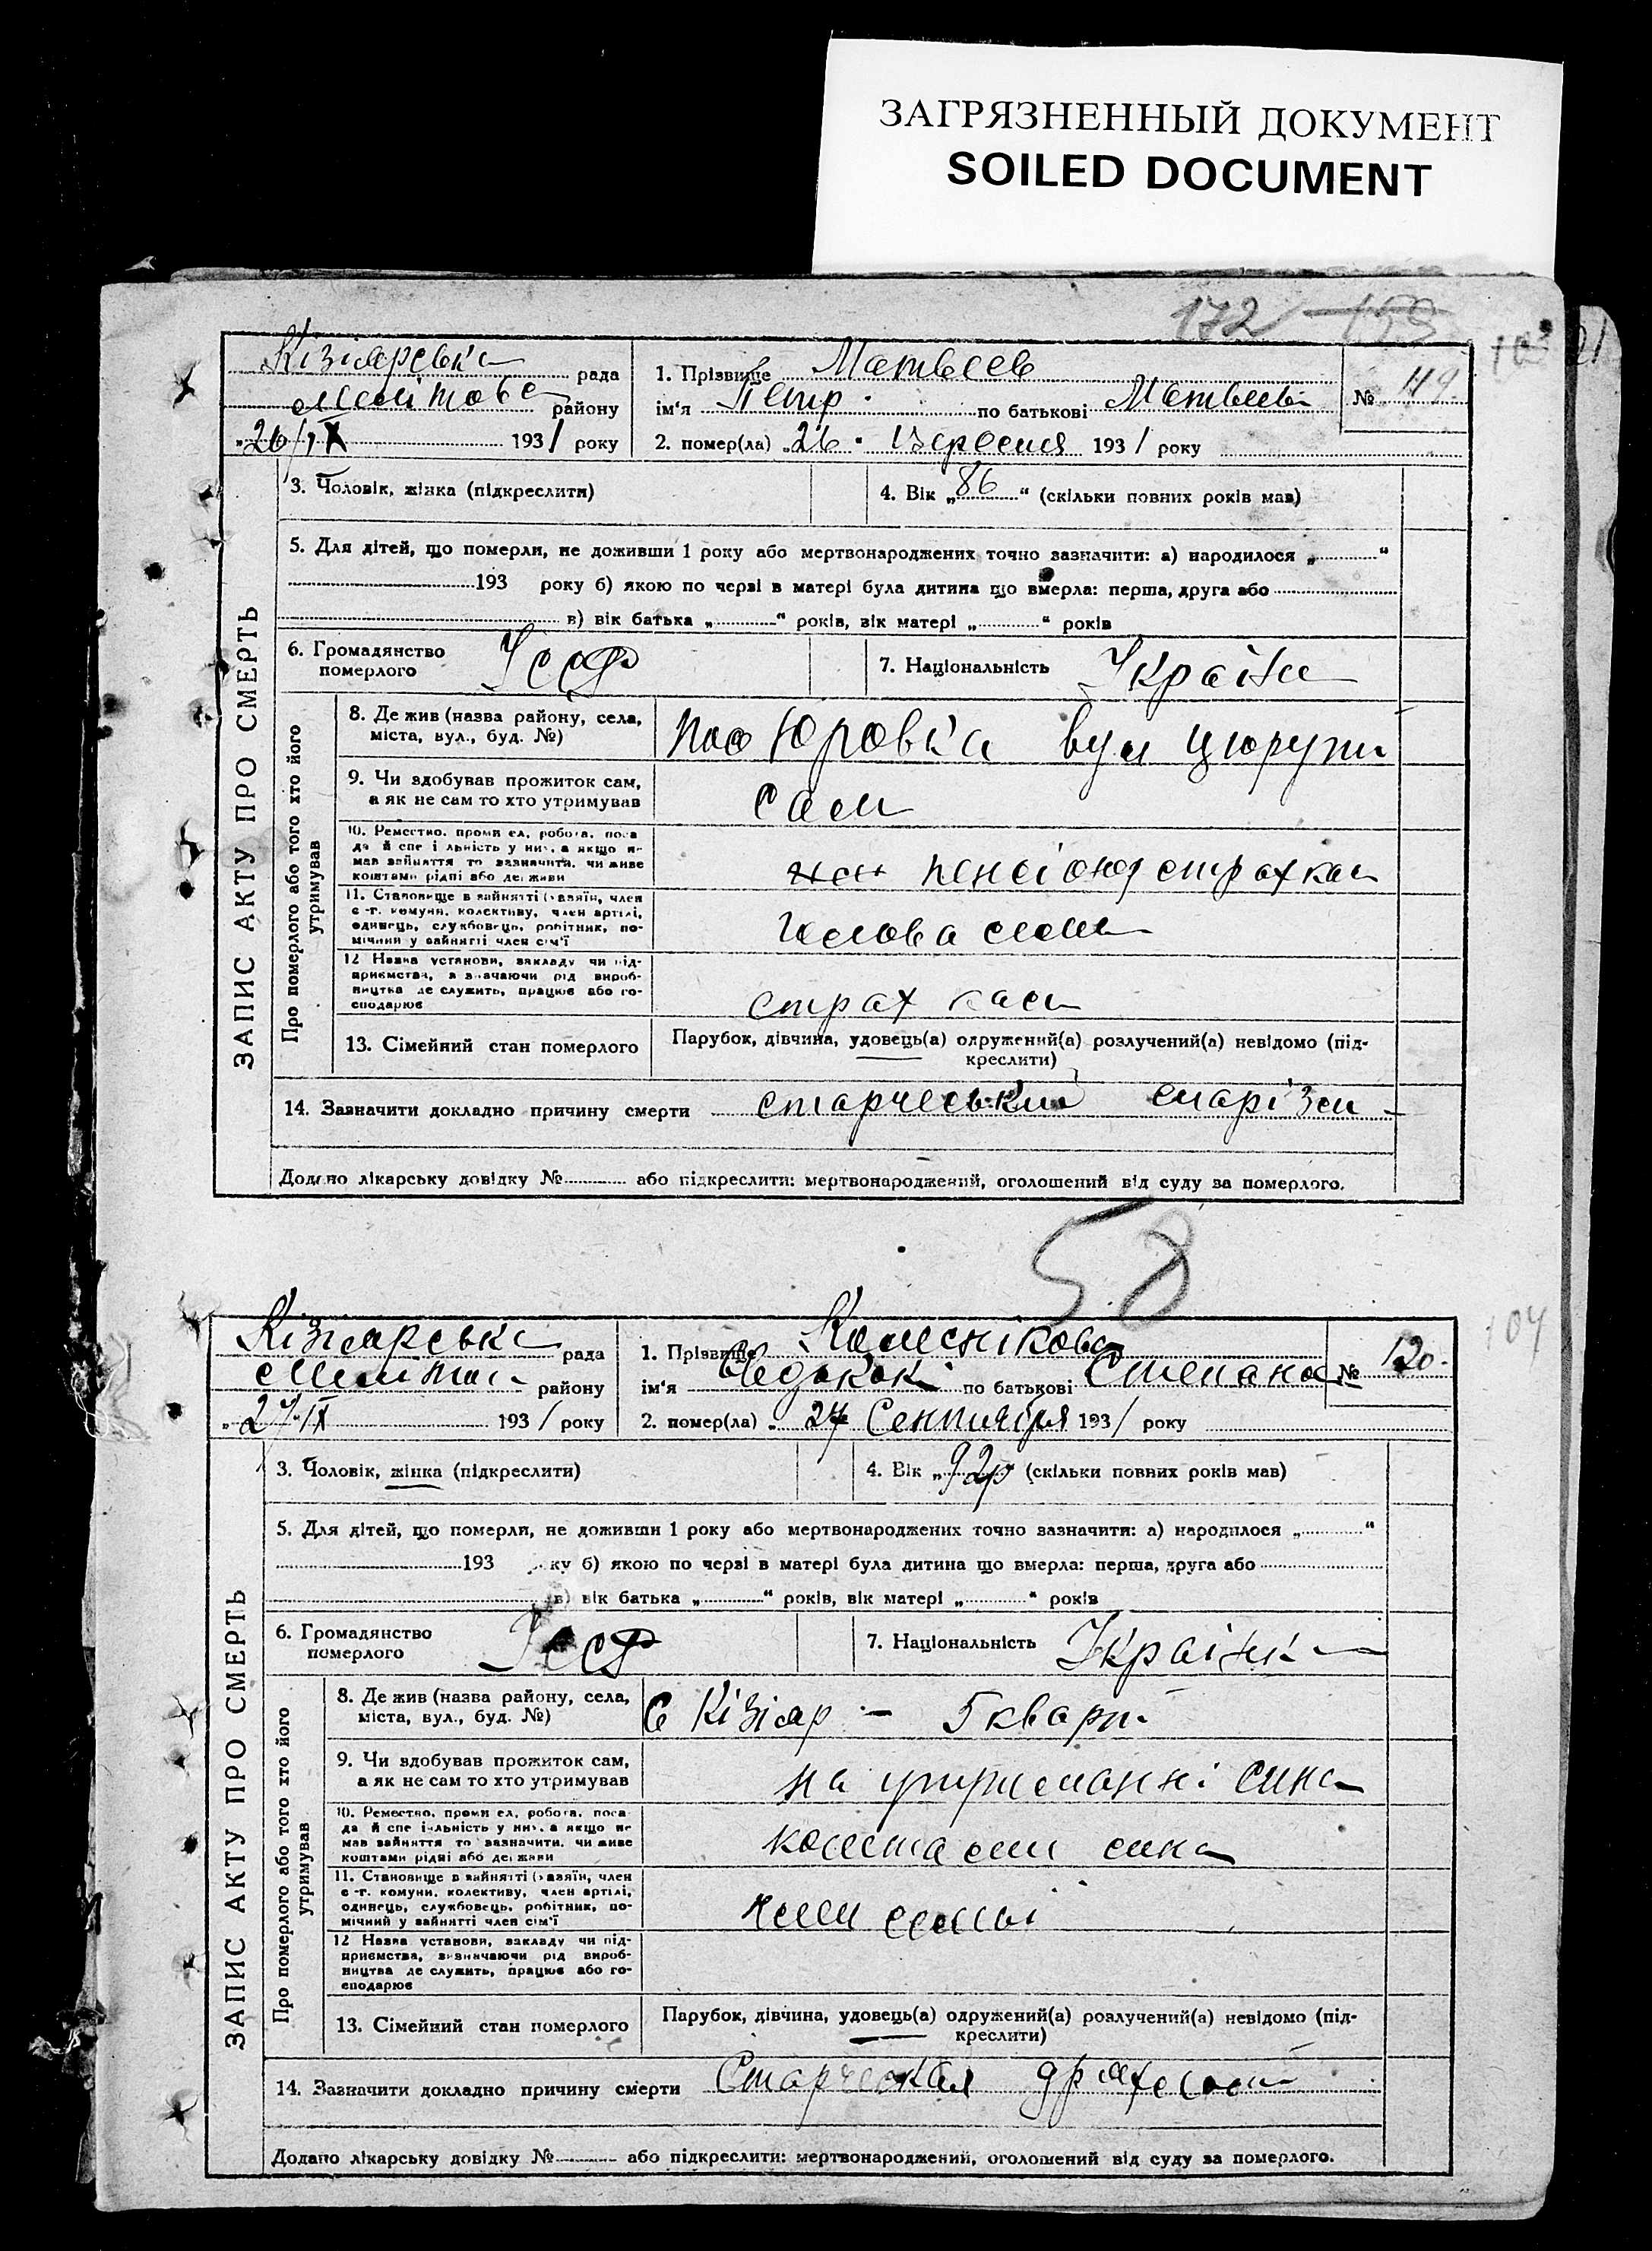 ЗАГРЯЗНЕННЫЙ ДОКУМЕНТ
SOILED DOCUMENT
172 153 103
Кізіярська рада
Мелітов района району
"26/IX 1931 року
1. Прізвище Матвеев
ім'я Петр по батькові Матвеев
№ 119
2. помер(ла) "26" Вересня 1931 року
ЗАПИС АКТУ ПРО СМЕРТЬ
3. Чоловік, жінка (підкреслити)
4. Вік „86“ (скільки повних років мав)
5. Для дітей, що померли, не доживши 1 року або мертвонароджених точно зазначити: а) народилося „ “
193 року б) якою по черзі в матері була дитина що вмерла: перша, друга або
в) вік батька „ “ років, вік матері „ “ років
6. Громадянство померлого УССР
7. Національність Украінец
Про померлого або того хто його утримував
8. Де жив (назва району, села, міста, вул., буд. №)
пос Юровка вул Цюрупи
9. Чи здобував прожиток сам, а як не сам то хто утримував
сам
10. Ремество, промисел, робота, посада й спеціяльність у них, а якщо не мав зайняття то зазначити, чи живе коштами рідні або держави
пенсіонер страхкаси
11. Становище в зайнятті (хазяїн, член с.-г. комуни, колективу, член артілі, одинець, службовець, робітник, помічний у зайнятті член сім'ї
голова семьи
12 Назва установи, закладу чи підприємства, зазначаючи рід виробництва де служить, працює або господарює
страх каси
13. Сімейний стан померлого
Парубок, дівчина, удовець(а) одружений(а) розлучений(а) невідомо (підкреслити)
14. Зазначити докладно причину смерти старческий маразм
Додано лікарську довідку № або підкреслити: мертвонароджений, оголошений від суду за померлого.
58
104
Кізіярська рада
Меліто району
"27/IX 1931 року
1. Прізвище Колеснікова
ім'я по батькові Степановна
№ 120
2. помер(ла) „ 27 Сентября 1931 року
ЗАПИС АКТУ ПРО СМЕРТЬ
3. Чоловік, жінка (підкреслити)
4. Вік „92р (скільки повних років мав)
5. Для дітей, що померли, не доживши 1 року або мертвонароджених точно зазначити: а) народилося „ “
193 ку б) якою по черзі в матері була дитина що вмерла: перша, друга або
в) вік батька „ “ років, вік матері „ “ років
6. Громадянство померлого УССР
7. Національність Украінка
Про померлого або того хто його утримував
8. Де жив (назва району, села, міста, вул., буд. №)
С Кізіяр – 5 кварт
9. Чи здобував прожиток сам, а як не сам то хто утримував
на утриманні сина
10. Ремество, промисел, робота, посада й спеціяльність у них, а якщо не мав зайняття то зазначити, чи живе коштами рідні або держави
коштами сина
11. Становище в зайнятті (хазяїн, член с.-г. комуни, колективу, член артілі, одинець, службовець, робітник, помічний у зайнятті член сім'ї
член семьі
12 Назва установи, закладу чи підприємства, зазначаючи рід виробництва де служить, працює або господарює
13. Сімейний стан померлого
Парубок, дівчина, удовець(а) одружений(а) розлучений(а) невідомо (підкреслити)
14. Зазначити докладно причину смерти Старческая дряхлость
Додано лікарську довідку № або підкреслити: мертвонароджений, оголошений від суду за померлого.